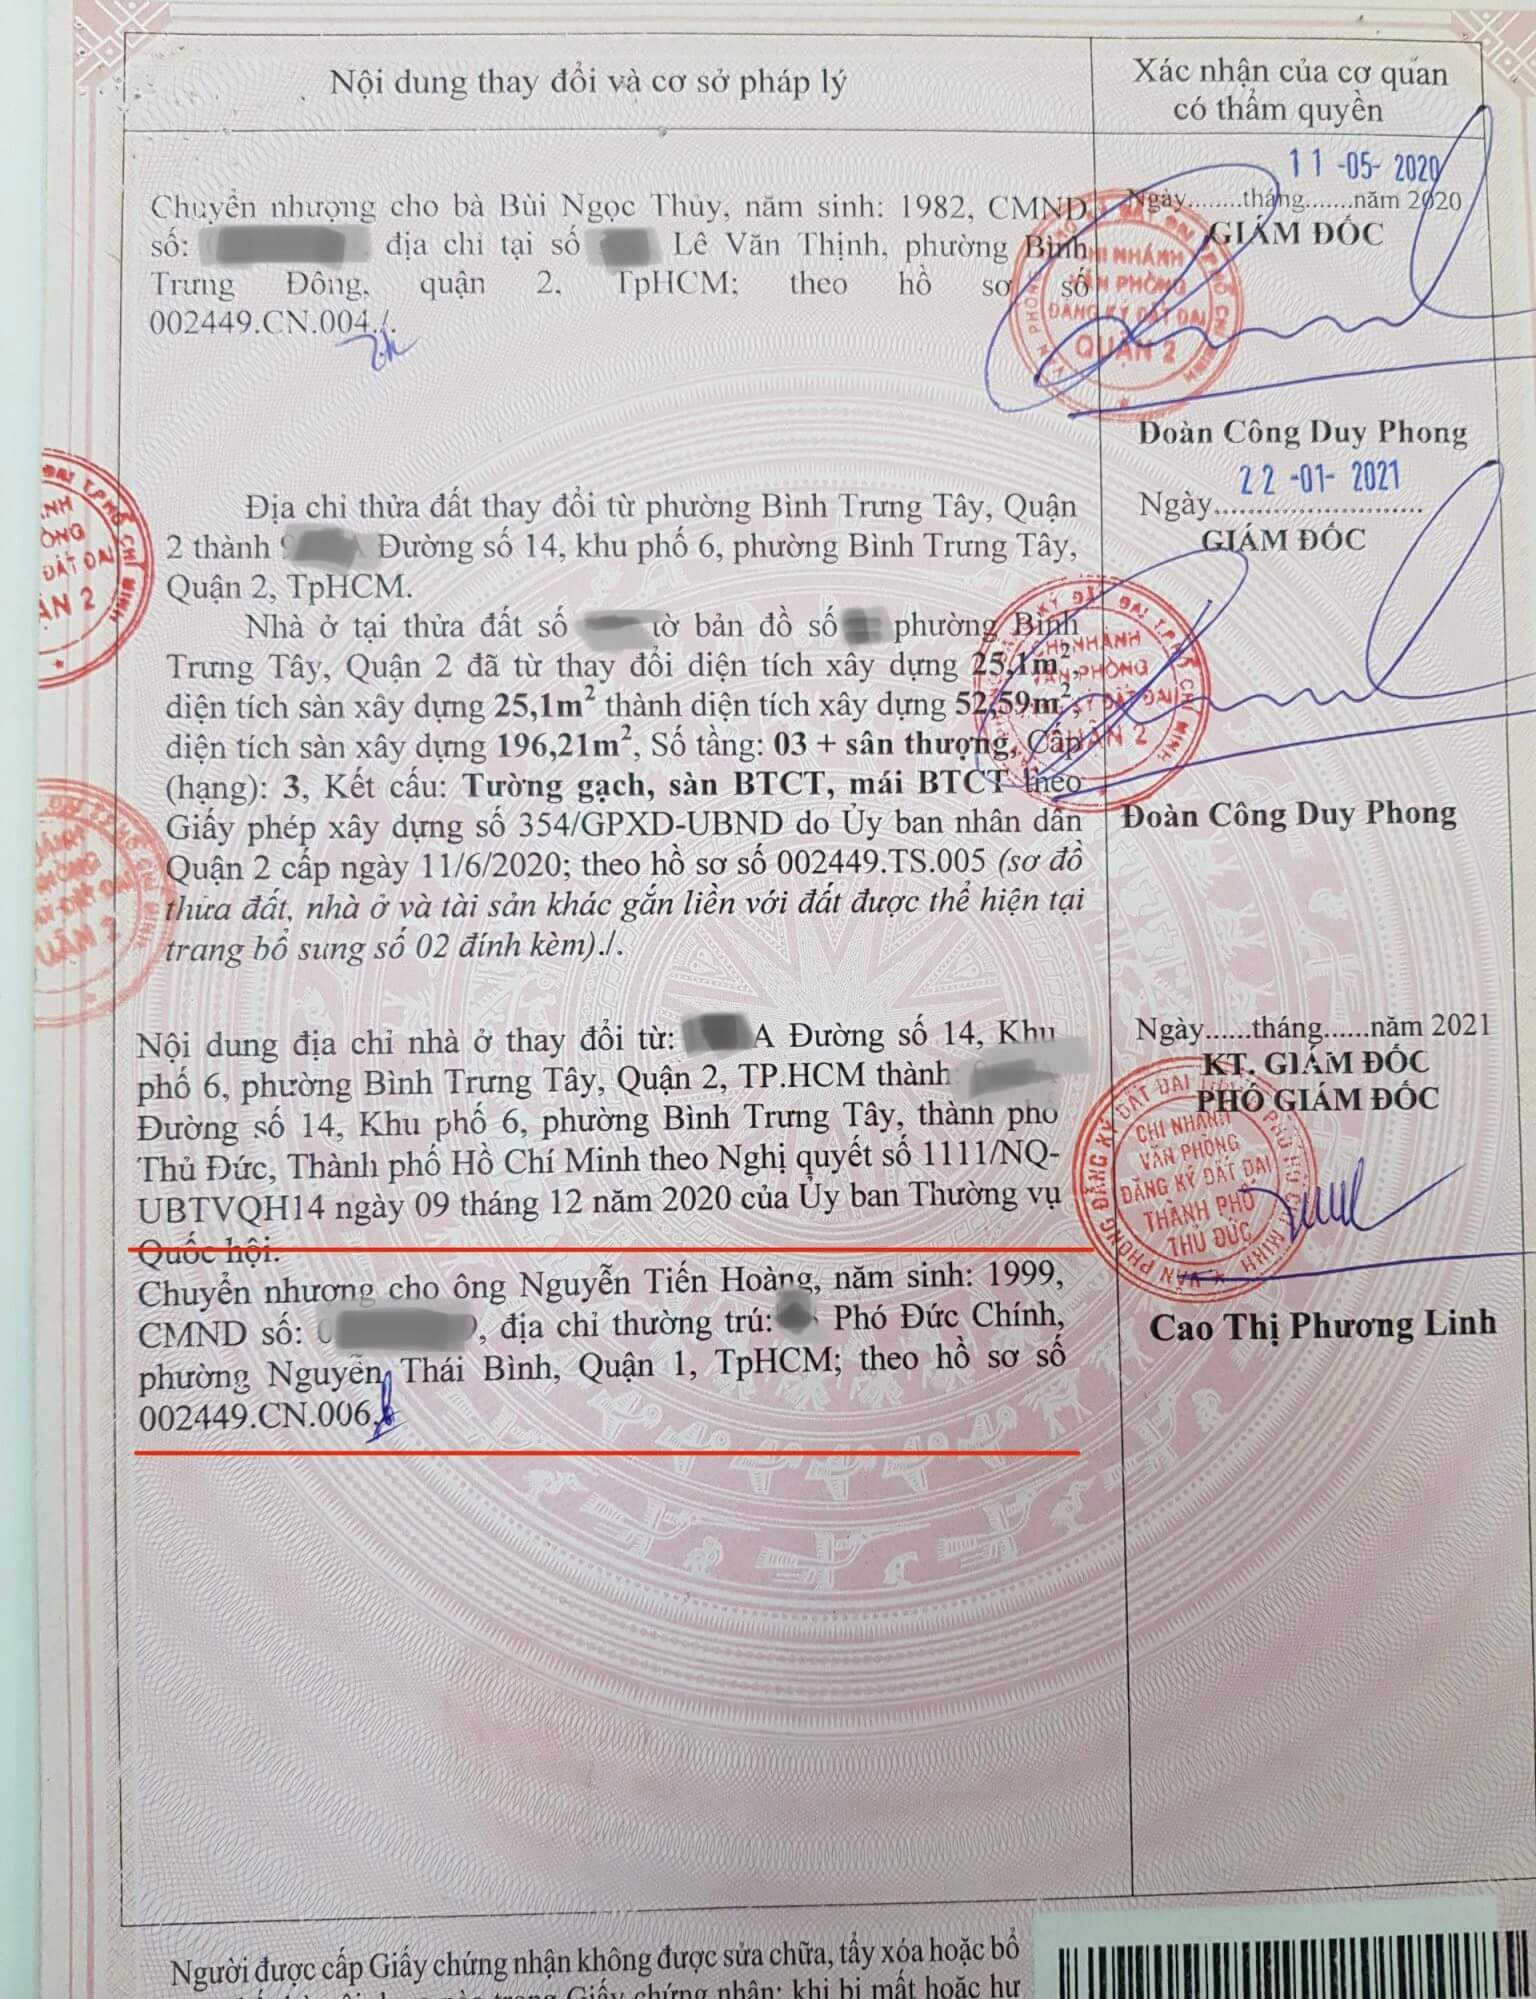 Nội dung thay đổi và cơ sở pháp lý
Xác nhận của cơ quan
có thẩm quyền
Chuyển nhượng cho bà Bùi Ngọc Thủy, năm sinh: 1982, CMND
số: địa chỉ tại số Lê Văn Thịnh, phường Bình
Trưng Đông, quận 2, TpHCM; theo hồ sơ số
002449.CN.004./.
11-05-2020
Ngày........tháng.......năm 2020
GIÁM ĐỐC
CHI NHÁNH
VĂN PHÒNG
ĐĂNG KÝ ĐẤT ĐAI
QUẬN 2
Đoàn Công Duy Phong
Địa chỉ thửa đất thay đổi từ phường Bình Trưng Tây, Quận
2 thành Đường số 14, khu phố 6, phường Bình Trưng Tây,
Quận 2, TpHCM.
Nhà ở tại thửa đất số tờ bản đồ số phường Bình
Trưng Tây, Quận 2 đã từ thay đổi diện tích xây dựng 25,1m²,
diện tích sàn xây dựng 25,1m² thành diện tích xây dựng 52,59m²,
diện tích sàn xây dựng 196,21m², Số tầng: 03 + sân thượng, Cấp
(hạng): 3, Kết cấu: Tường gạch, sàn BTCT, mái BTCT theo
Giấy phép xây dựng số 354/GPXD-UBND do Ủy ban nhân dân
Quận 2 cấp ngày 11/6/2020; theo hồ sơ số 002449.TS.005 (sơ đồ
thửa đất, nhà ở và tài sản khác gắn liền với đất được thể hiện tại
trang bổ sung số 02 đính kèm)./.
22-01-2021
Ngày........................
GIÁM ĐỐC
CHI NHÁNH
VĂN PHÒNG
ĐĂNG KÝ ĐẤT ĐAI
QUẬN 2
Đoàn Công Duy Phong
Nội dung địa chỉ nhà ở thay đổi từ: A Đường số 14, Khu
phố 6, phường Bình Trưng Tây, Quận 2, TP.HCM thành
Đường số 14, Khu phố 6, phường Bình Trưng Tây, thành phố
Thủ Đức, Thành phố Hồ Chí Minh theo Nghị quyết số 1111/NQ-
UBTVQH14 ngày 09 tháng 12 năm 2020 của Ủy ban Thường vụ
Quốc hội.
Chuyển nhượng cho ông Nguyễn Tiến Hoàng, năm sinh: 1999,
CMND số: , địa chỉ thường trú: Phó Đức Chính,
phường Nguyễn Thái Bình, Quận 1, TpHCM; theo hồ sơ số
002449.CN.006.
Ngày......tháng......năm 2021
KT. GIÁM ĐỐC
PHÓ GIÁM ĐỐC
CHI NHÁNH
VĂN PHÒNG
ĐĂNG KÝ ĐẤT ĐAI
THÀNH PHỐ
THỦ ĐỨC
Cao Thị Phương Linh
Người được cấp Giấy chứng nhận không được sửa chữa, tẩy xóa hoặc bổ
Giấy chứng nhận; khi bị mất hoặc hư